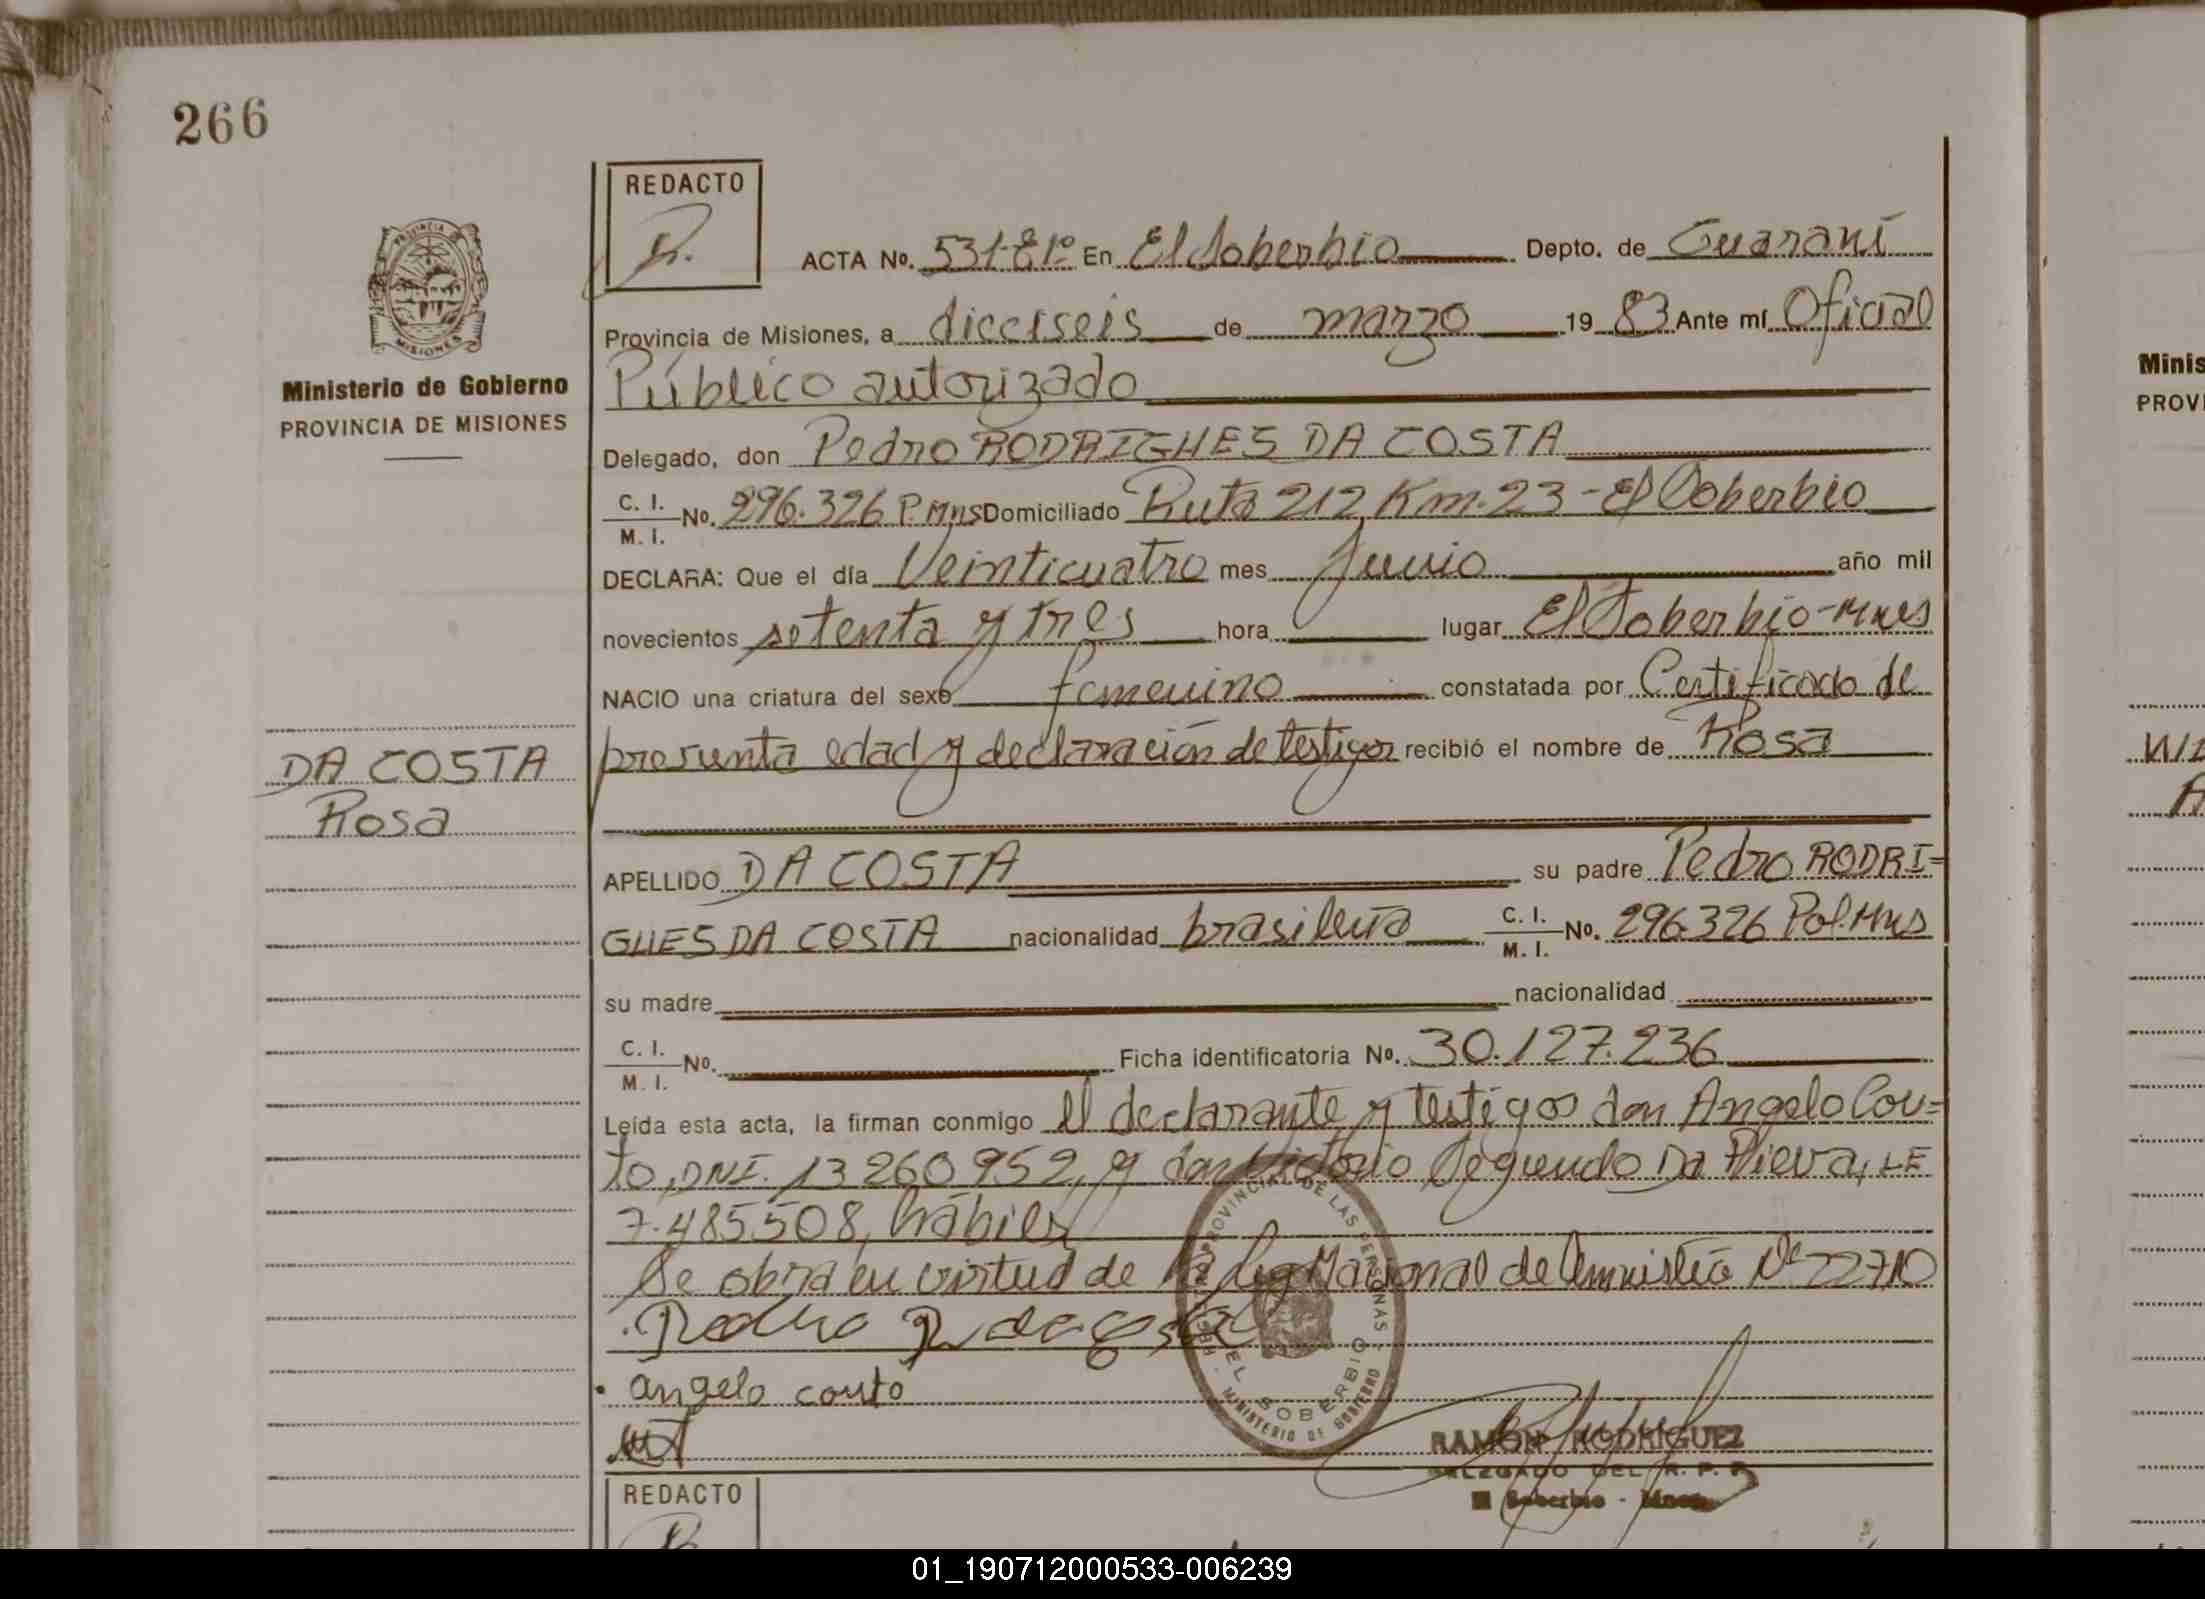 266
REDACTO
R.
ACTA No. 531-E1º En El Soberbio Depto. de Guaraní
Provincia de Misiones, a dieciseis de marzo 19 83 Ante mí Oficial
Público autorizado
Ministerio de Gobierno
PROVINCIA DE MISIONES
Delegado, don Pedro RODRIGUES DA COSTA
C. I. / M. I. No. 296.326 P. Mns Domiciliado Ruta 212 Km. 23 - El Soberbio
DECLARA: Que el día Veinticuatro mes Junio año mil
novecientos setenta y tres hora lugar El Soberbio - Mnes
NACIO una criatura del sexo femenino constatada por Certificado de
presunta edad y declaración de testigos recibió el nombre de Rosa
DA COSTA
Rosa
APELLIDO DA COSTA su padre Pedro RODRI=
GUES DA COSTA nacionalidad brasileña C. I. / M. I. No. 296.326 Pol. Mns
su madre nacionalidad
C. I. / M. I. No. Ficha identificatoria No. 30.127.236
Leída esta acta, la firman conmigo el declarante y testigos don Angelo Cou=
to, DNI. 13 260 952, y don Victorio Segundo Da Pieva, LE
7.485.508, hábiles
Se obra en virtud de la Ley Nacional de Amnistía Nº 22710
Pedro R da Costa
angelo couto
PROVINCIAL DE LAS PERSONAS
EL SOBERBIO
MINISTERIO DE GOBIERNO
RAMON RODRIGUEZ
DELEGADO DEL R. P. P.
El Soberbio - Mnes
REDACTO
R
Minis
PROVI
01_190712000533-006239